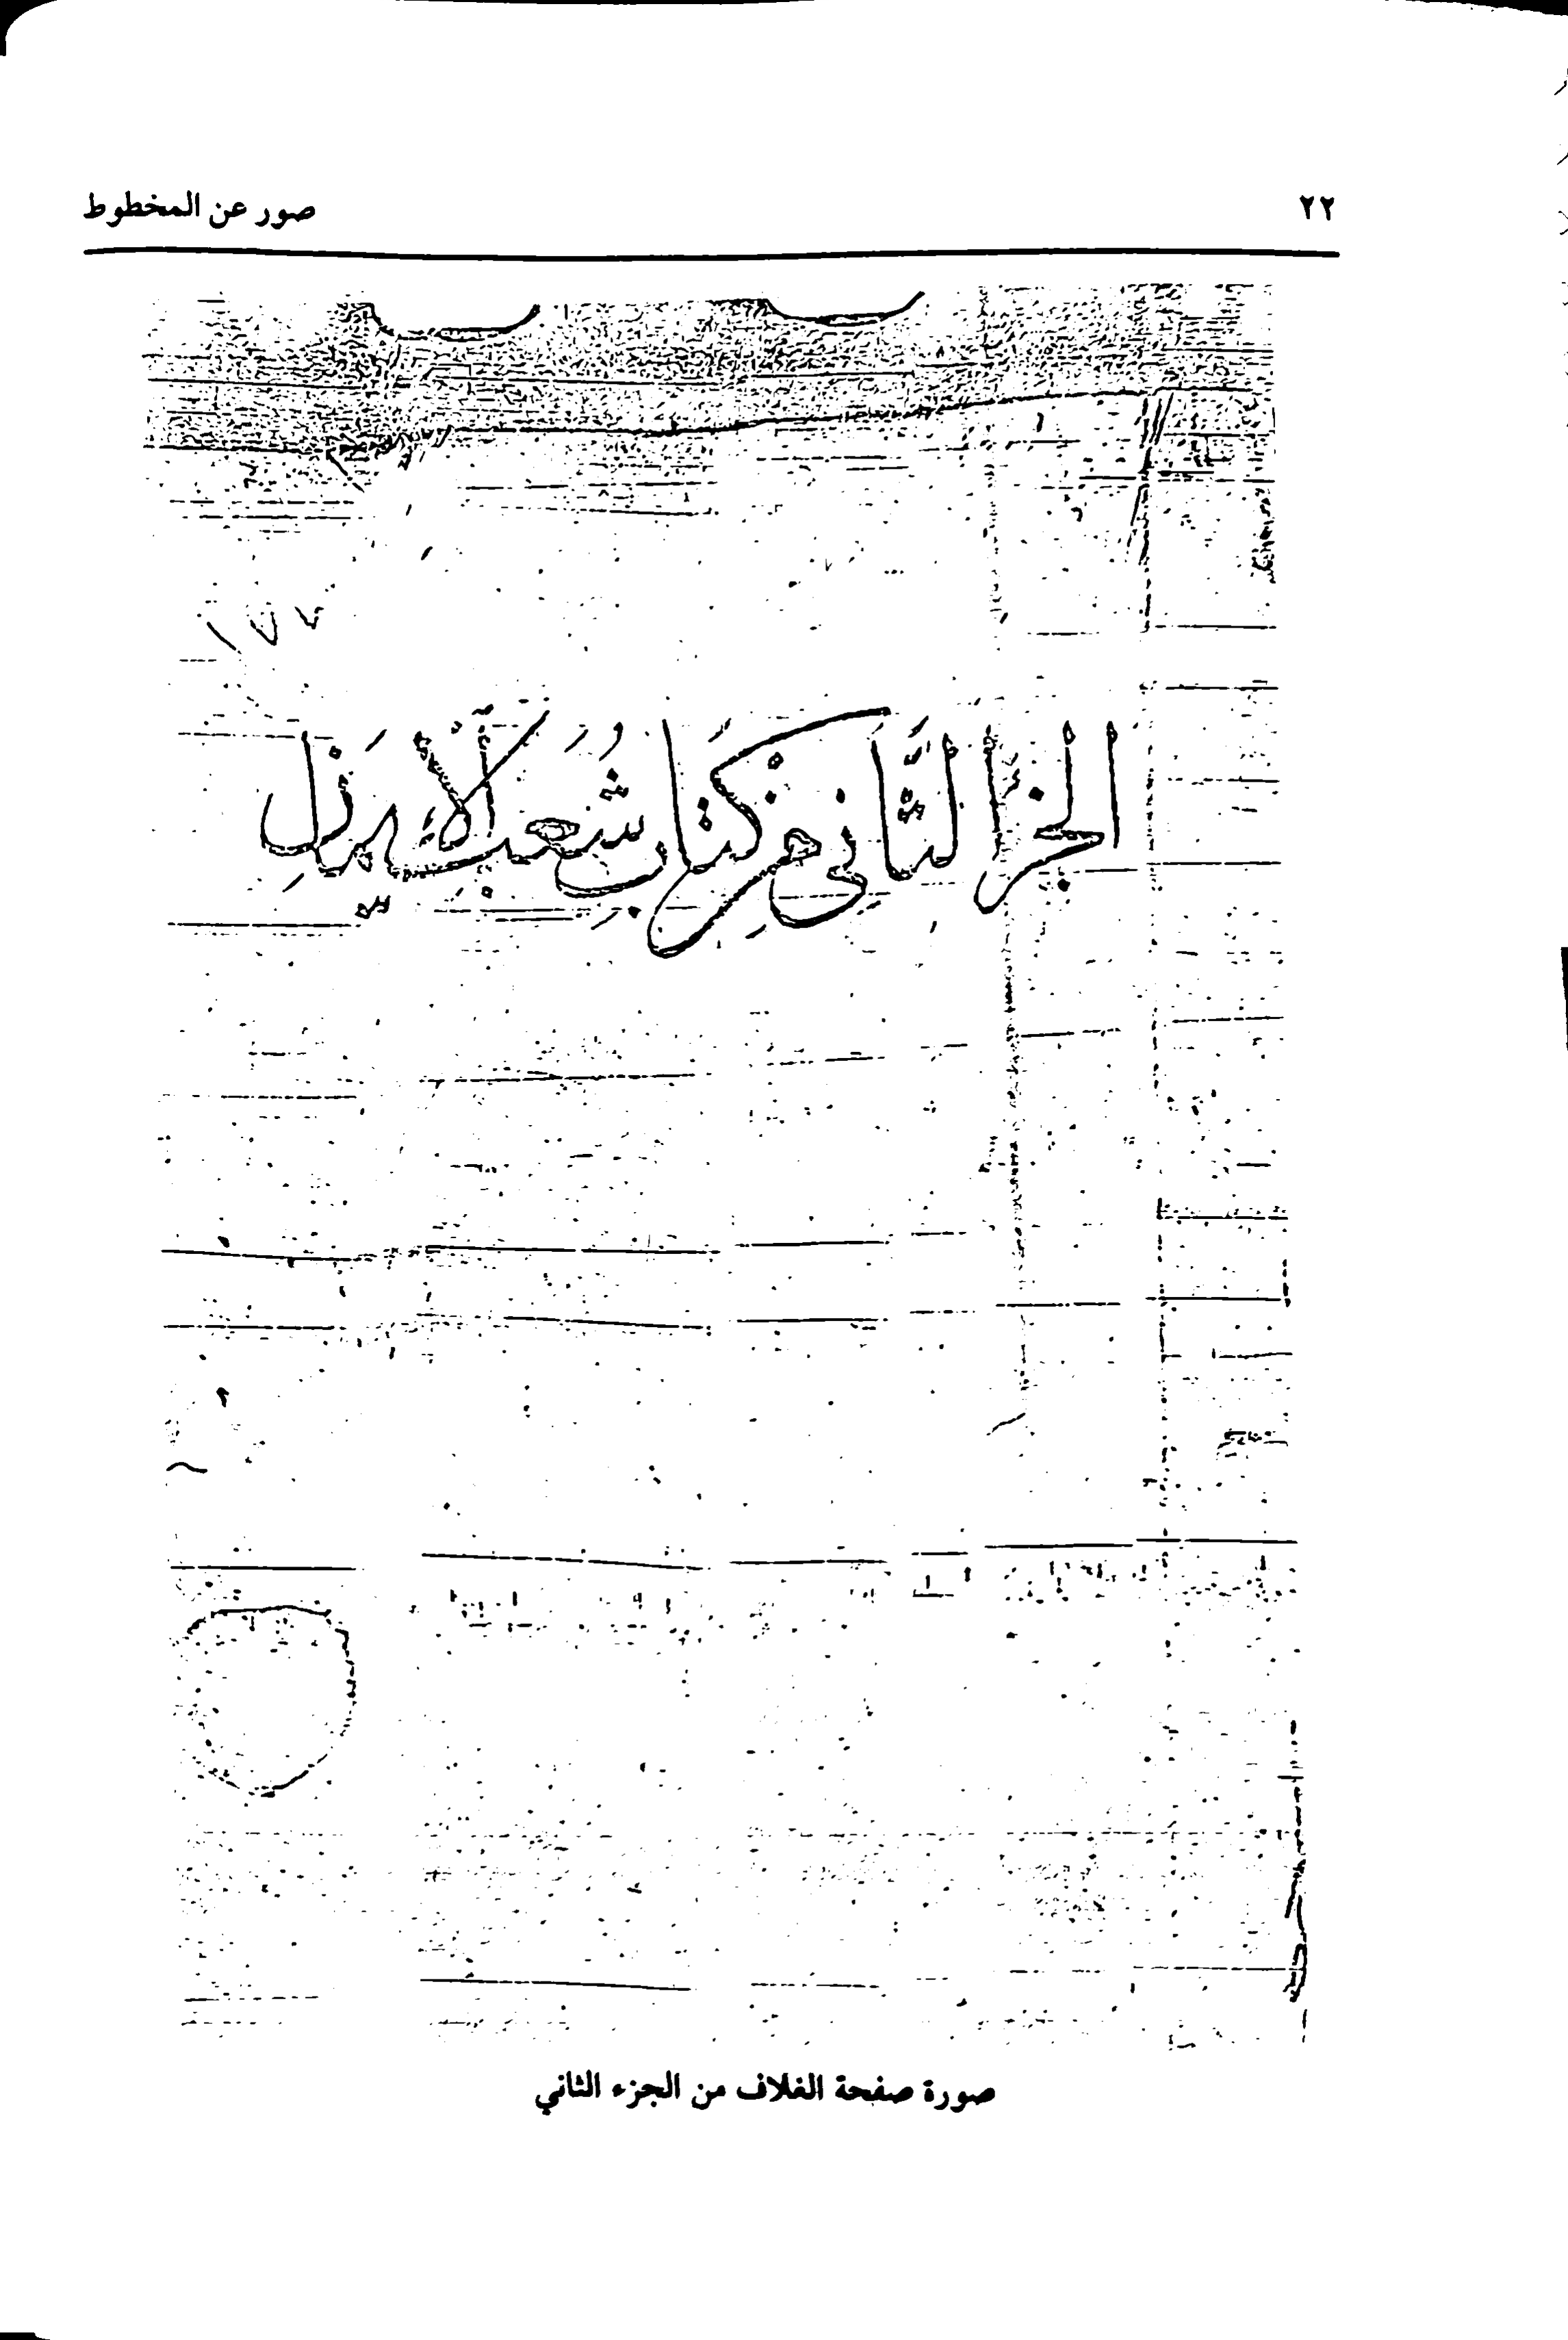 ٢٢ صور عن المخطوط
١٧٢
الجزا الثَّانِي مِن كتَاب شُعَب الْإِيمَانِ
صورة صفحة الغلاف من الجزء الثاني